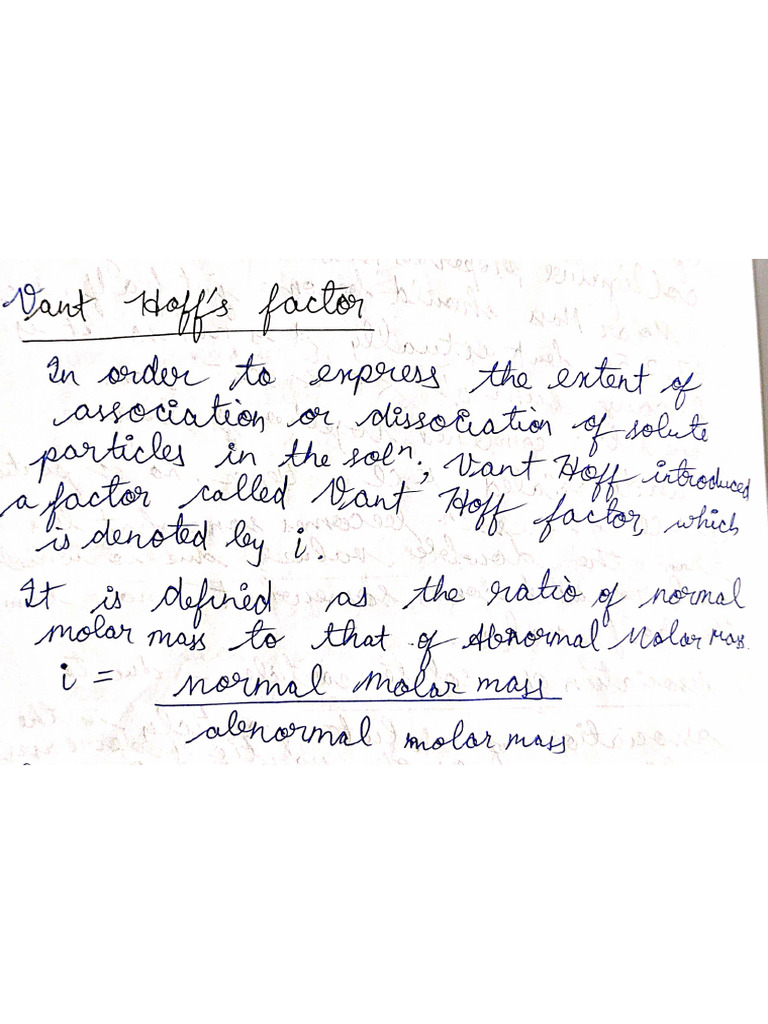 Vant Hoff's factor
In order to express the extent of
association or dissociation of solute
particles in the solⁿ, Vant Hoff introduced
a factor called Vant Hoff factor, which
is denoted by i.
It is defined as the ratio of normal
molar mass to that of Abnormal Molar mass.
i = normal molar mass
abnormal molar mass